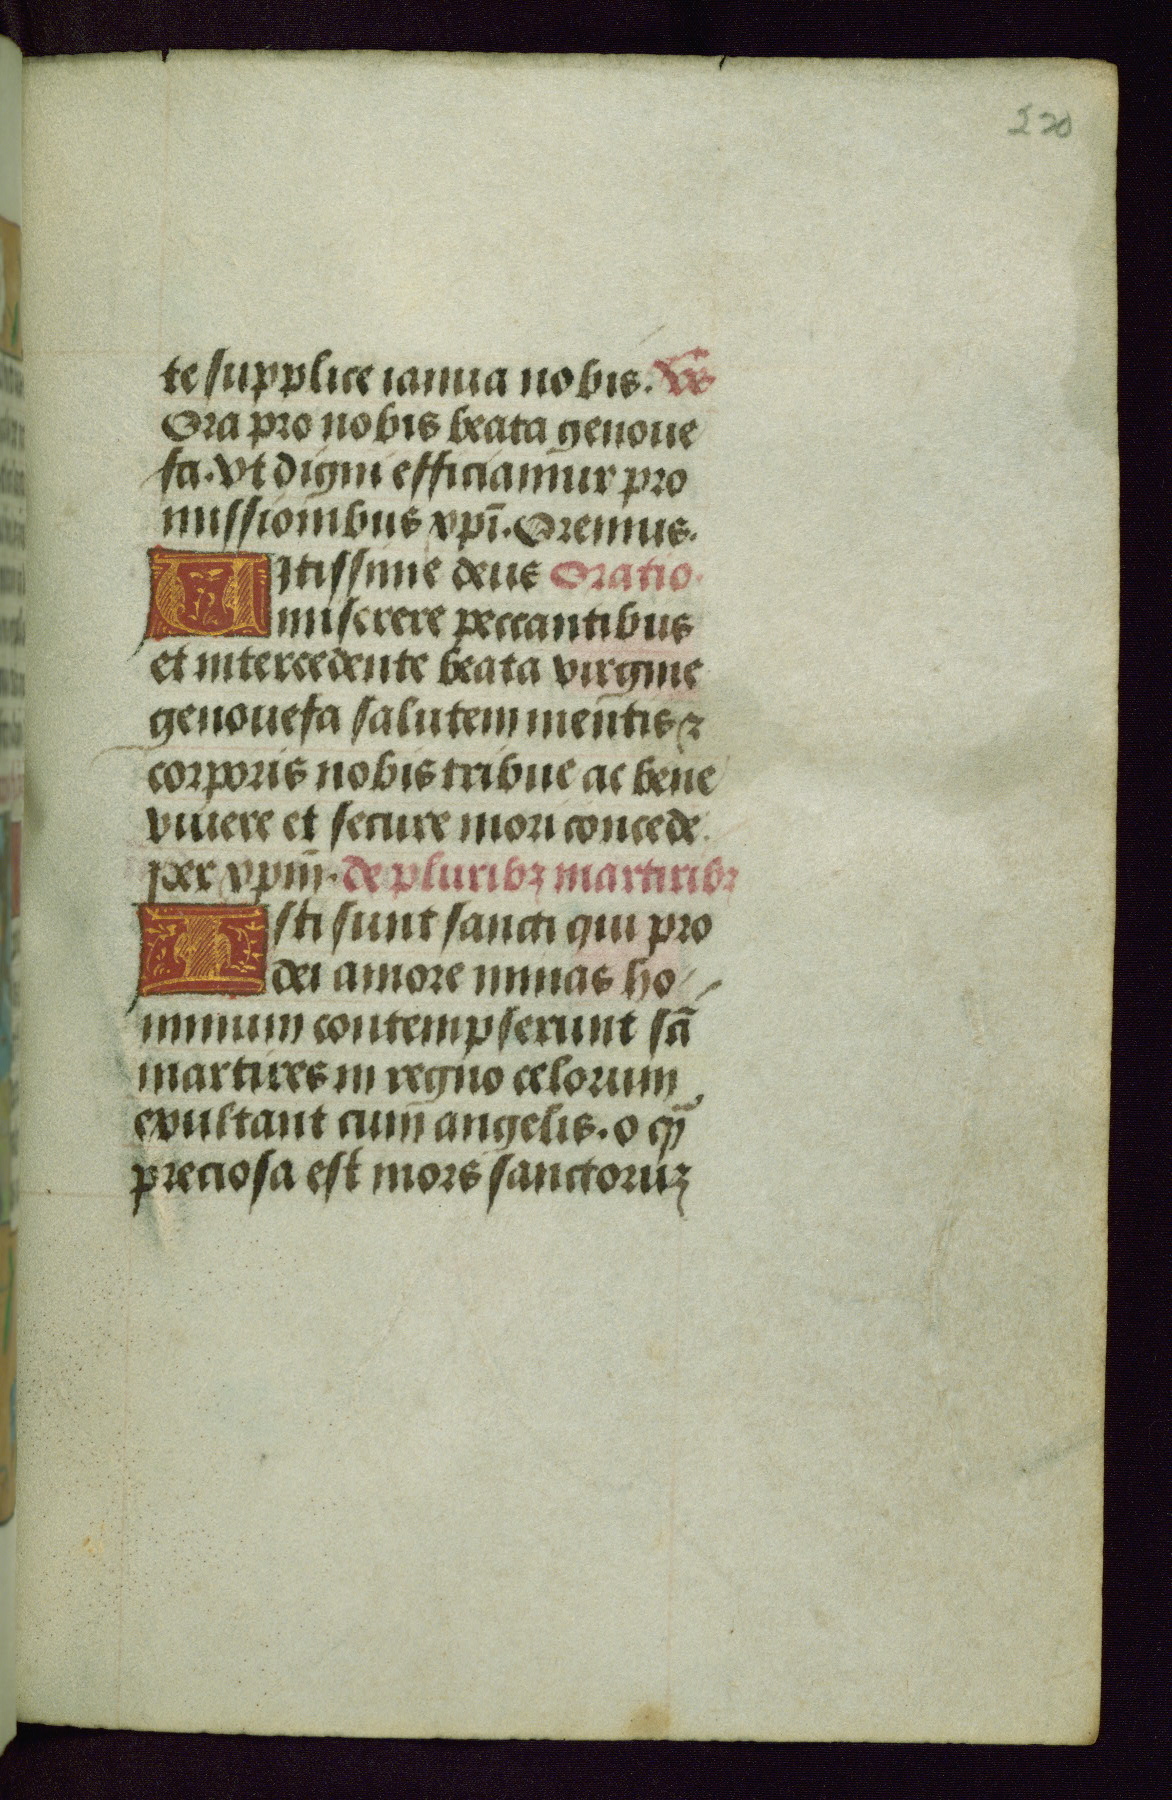 220
te supplice ianua nobis. V̅s̅
Ora pro nobis beata genoue
fa. Vt digni efficiamur pro
missionibus xp̅i. Oremus.
Mitissime deus Oratio.
miserere peccantibus
et intercedente beata virgine
genouefa salutem mentis ⁊
corporis nobis tribue ac bene
viuere et secure mori concede.
per xp̅m̅. de pluribꝫ martiribꝫ
Isti sunt sancti qui pro
dei amore minas ho
minum contempserunt sc̅i
martires in regno celorum
exultant cum angelis. o q̅ꝫ
preciosa est mors sanctoruꝫ